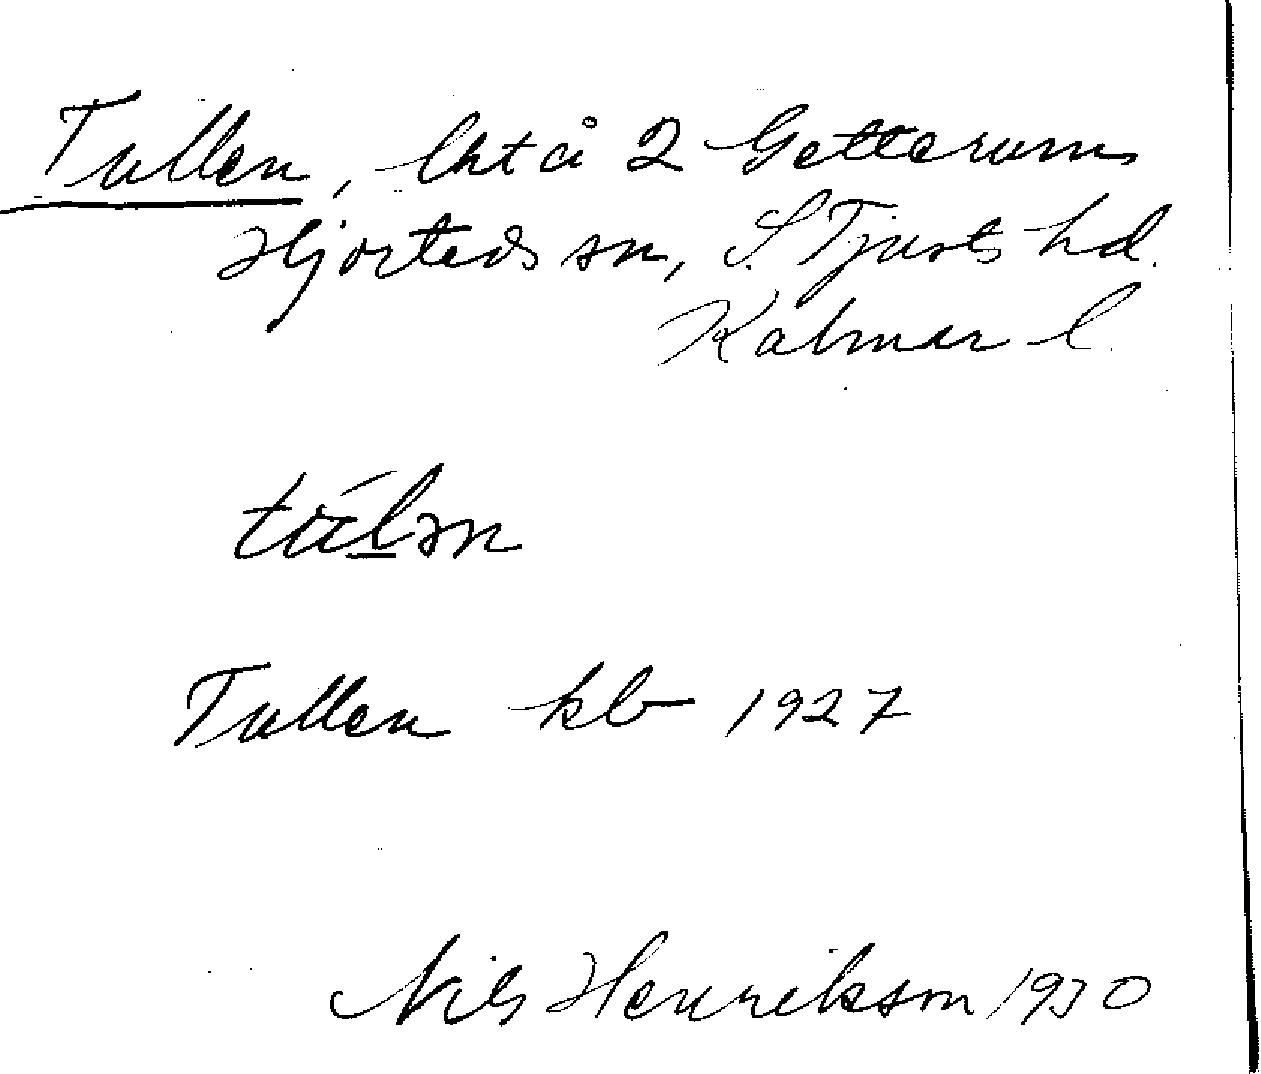 Tullen, lht å 2 Getterum
Hjorteds sn, S. Tjusts hd.
Kalmar l.
Tullen kb 1927
Nils Henrikson 1930